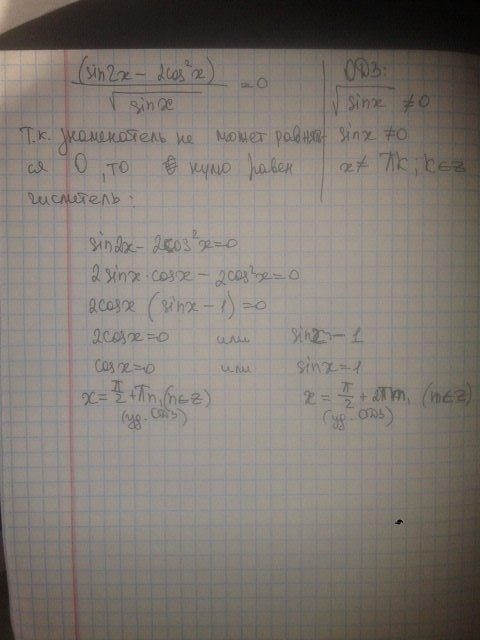 (sin2x - 2cos²x) / √sinx = 0
ОДЗ:
√sinx ≠0
sinx ≠0
x≠ πk; k∈z
Т.к. знаменатель не может равнять-
ся 0, то нулю равен
числитель:
sin2x - 2cos²x=0
2sinx·cosx - 2cos²x=0
2cosx (sinx - 1)=0
2cosx=0 или sinx - 1
cosx=0 или sinx=1
x= π/2 +πn, (n∈z) x= π/2 + 2πm, (m∈z)
(уд. ОДЗ) (уд. ОДЗ)